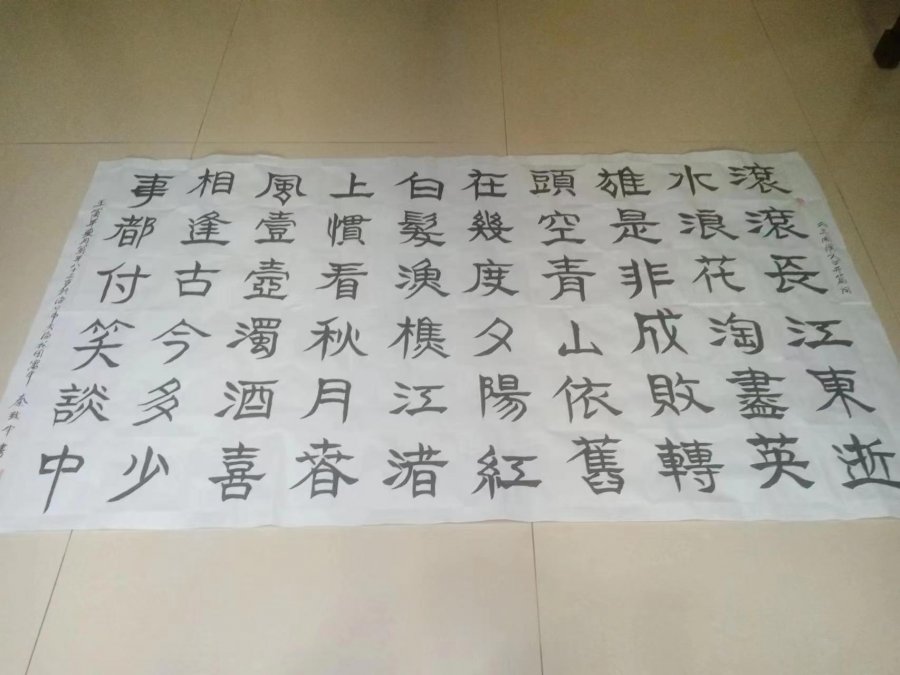 滾滾長江東逝
水浪花淘盡英
雄是非成敗轉
頭空青山依舊
在幾度夕陽紅
白髮漁樵江渚
上慣看秋月春
風壹壺濁酒喜
相逢古今多少
事都付笑談中